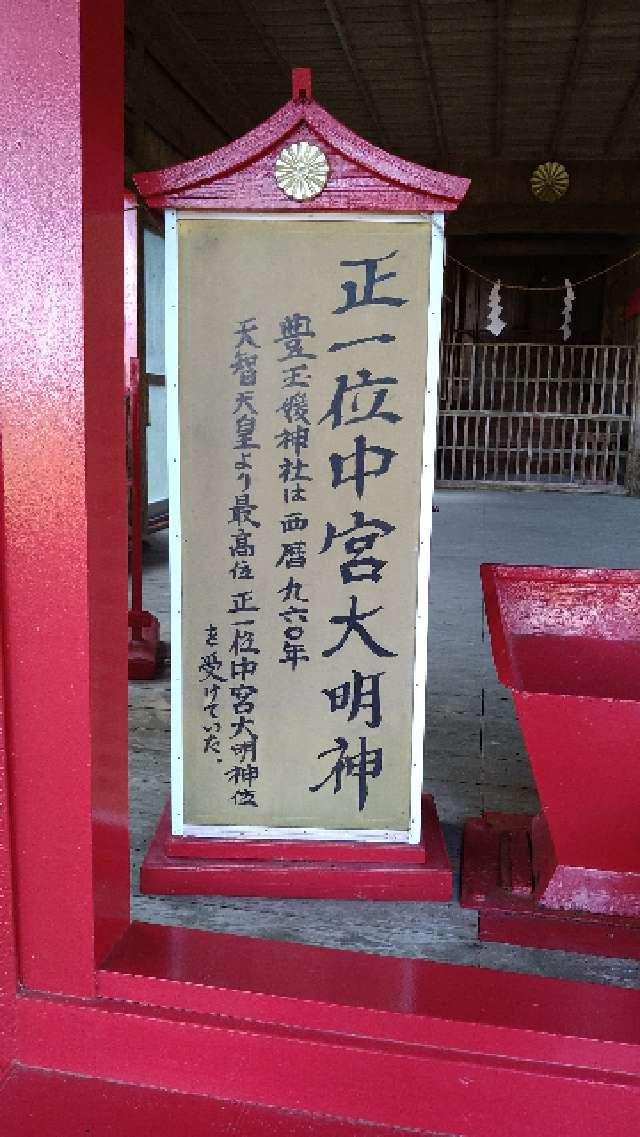 正一位中宮大明神
豊玉媛神社は西暦九六〇年
天智天皇より最高位正一位中宮大明神位
を受けていた.